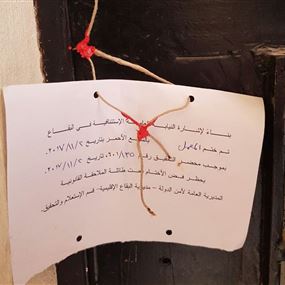 بناءً لإشارة النيابة العامة الإستئنافية في البقاع
تم ختم المعمل بالشمع الأحمر بتاريخ ٢٠١٧/١١/٢
بموجب محضر تحقيق رقم ٦٠١/٣٥ تاريخ ٢٠١٧/١١/٢.
يحظر فض الأختام تحت طائلة الملاحقة القانونية
المديرية العامة لأمن الدولة – مديرية البقاع الإقليمية – قسم الإستعلام والتحقيق.